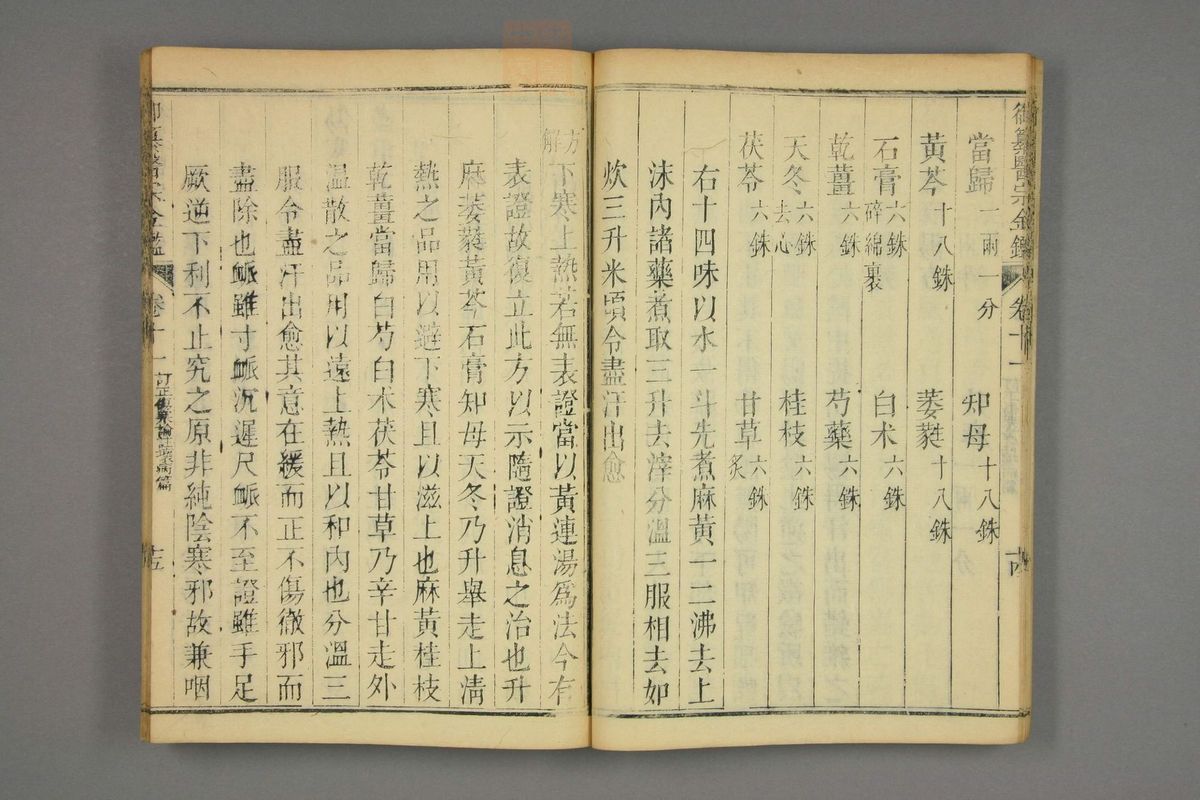 御纂醫宗金鑑 卷十一 十四
當歸一兩一分 知母十八銖
黃芩十八銖 萎蕤十八銖
石膏六銖碎綿裹 白术六銖
乾薑六銖 芍藥六銖
天冬六銖去心 桂枝六銖
茯苓六銖 甘草六銖炙
右十四味以水一斗先煮麻黃一二沸去上
沫內諸藥煮取三升去滓分溫三服相去如
炊三升米頃令盡汗出愈
方解 下寒上熱若無表證當以黃連湯爲法今有
表證故復立此方以示隨證消息之治也升
麻萎蕤黃芩石膏知母天冬乃升舉走上清
熱之品用以避下寒且以滋上也麻黃桂枝
乾薑當歸白芍白术茯苓甘草乃辛甘走外
溫散之品用以遠上熱且以和內也分溫三
服令盡汗出愈其意在緩而正不傷徹邪而
盡除也脈雖寸脈沉遲尺脈不至證雖手足
厥逆下利不止究之原非純陰寒邪故兼咽
御纂醫宗金鑑 卷十一 訂正傷寒論註 篇 十五